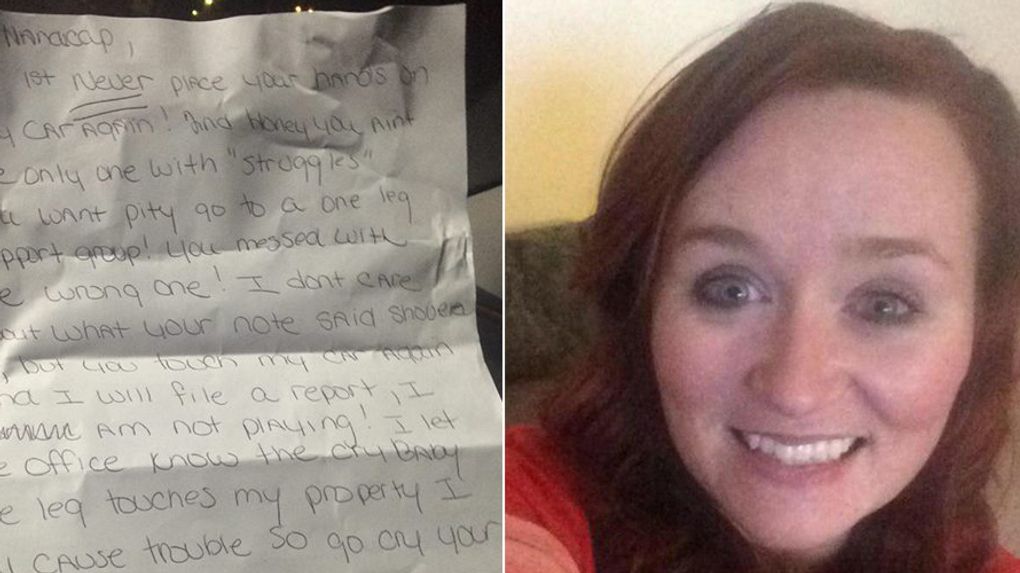 Handicap,
1st Never place your hands on
y CAR AGAIN! And Honey you Aint
e only one with "struggles"
u want pity go to a one leg
pport group! You messed with
e wrong one! I dont CARE
out what your note SAID shove
, but you touch my CAR AgAin
nd I will file a report, I
Am not plAying! I let
e office know the cry BABy
e leg touches my property I
CAUSE trouble so go cry your